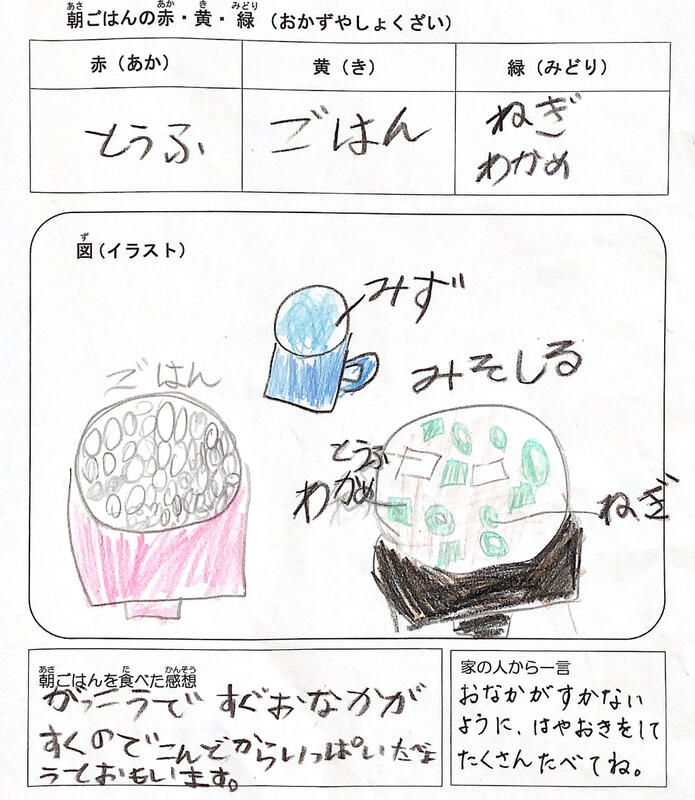 朝ごはんの赤・黄・緑（おかずやしょくざい）
赤（あか） 黄（き） 緑（みどり）
とうふ ごはん ねぎ
わかめ
図（イラスト）
みず
ごはん
みそしる
とうふ
わかめ
ねぎ
朝ごはんを食べた感想
がっこうで すぐおなかが
すくのでこんどからいっぱいたべよ
うとおもいます。
家の人から一言
おなかがすかない
ように、はやおきをして
たくさんたべてね。